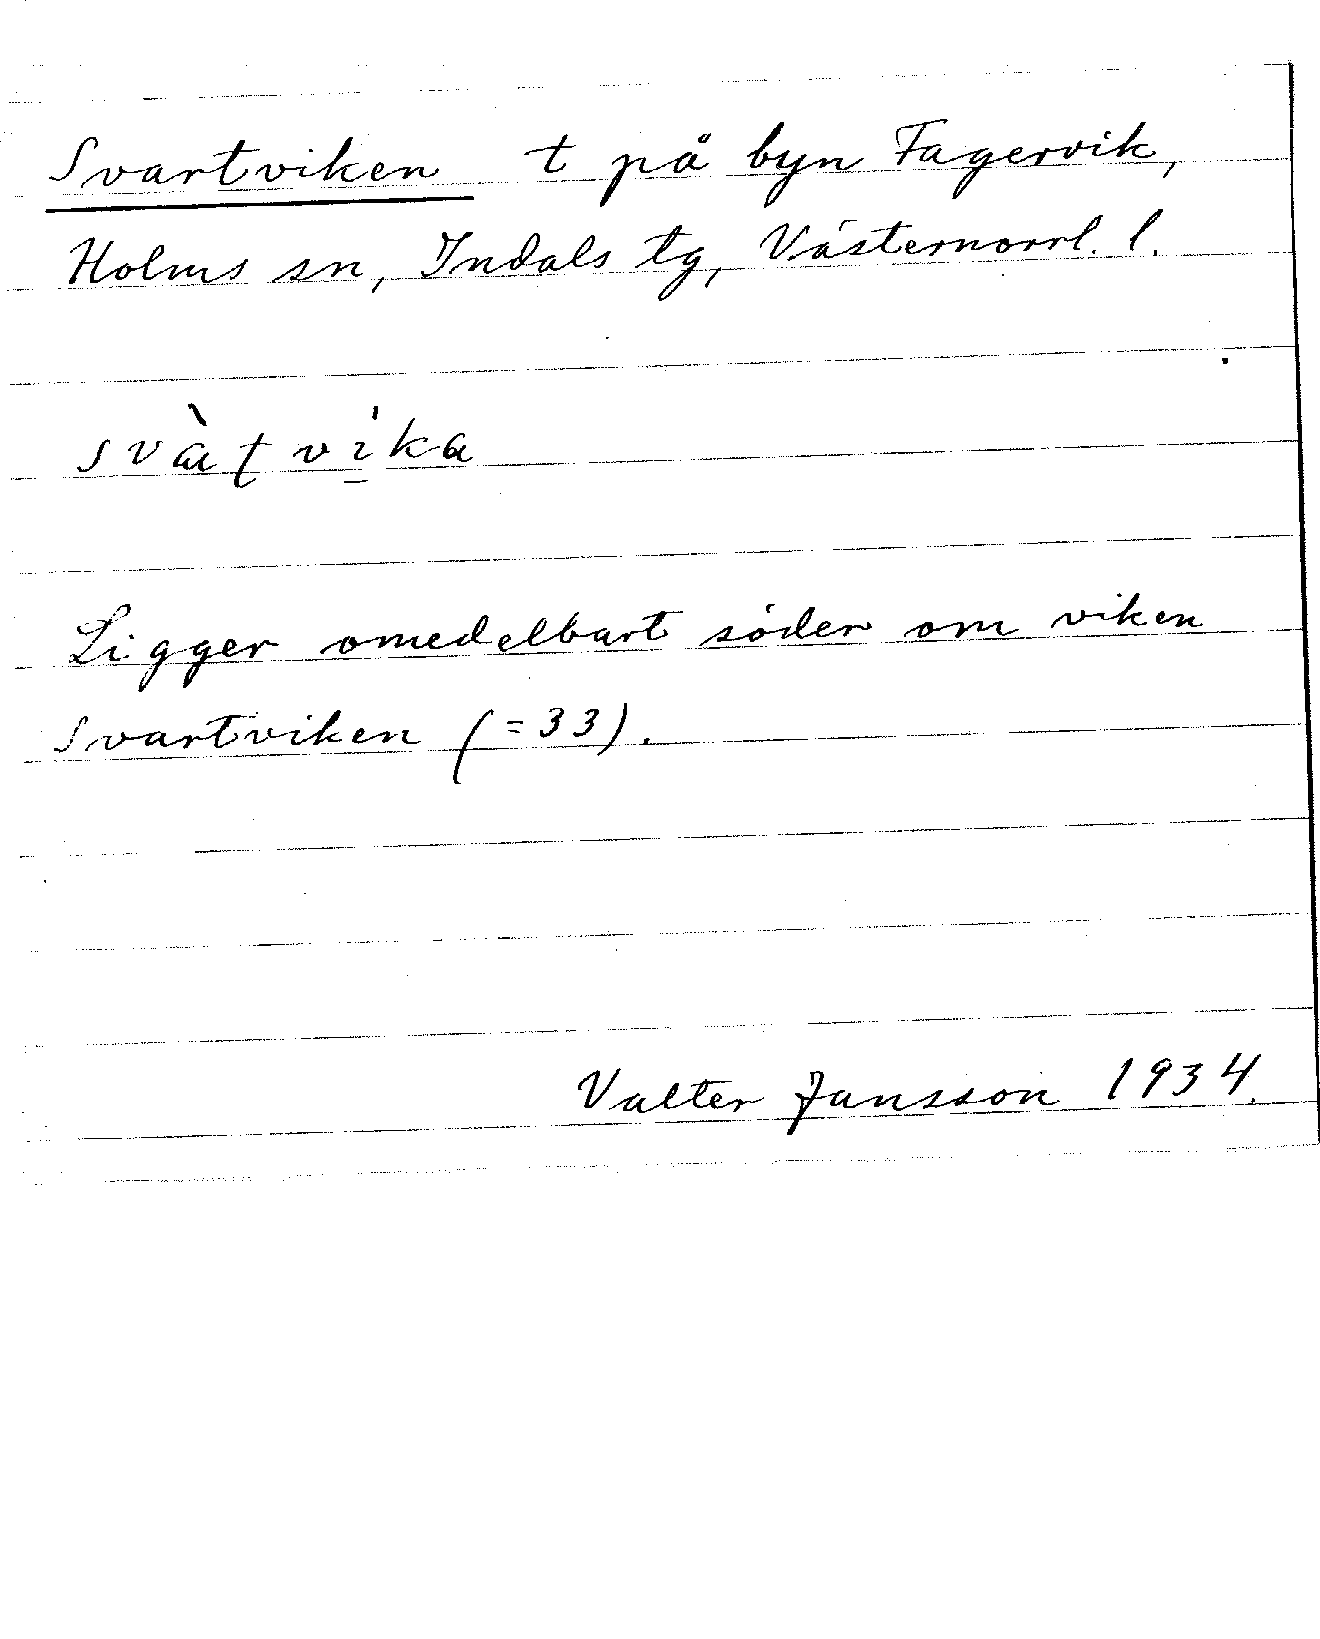 Svartviken t på byn Fagervik,
Holms sn, Indals tg, Västernorrl. l.
svàt̨ vi̱̍ka
Ligger omedelbart söder om viken
Svartviken (=33).
Valter Jansson 1934.